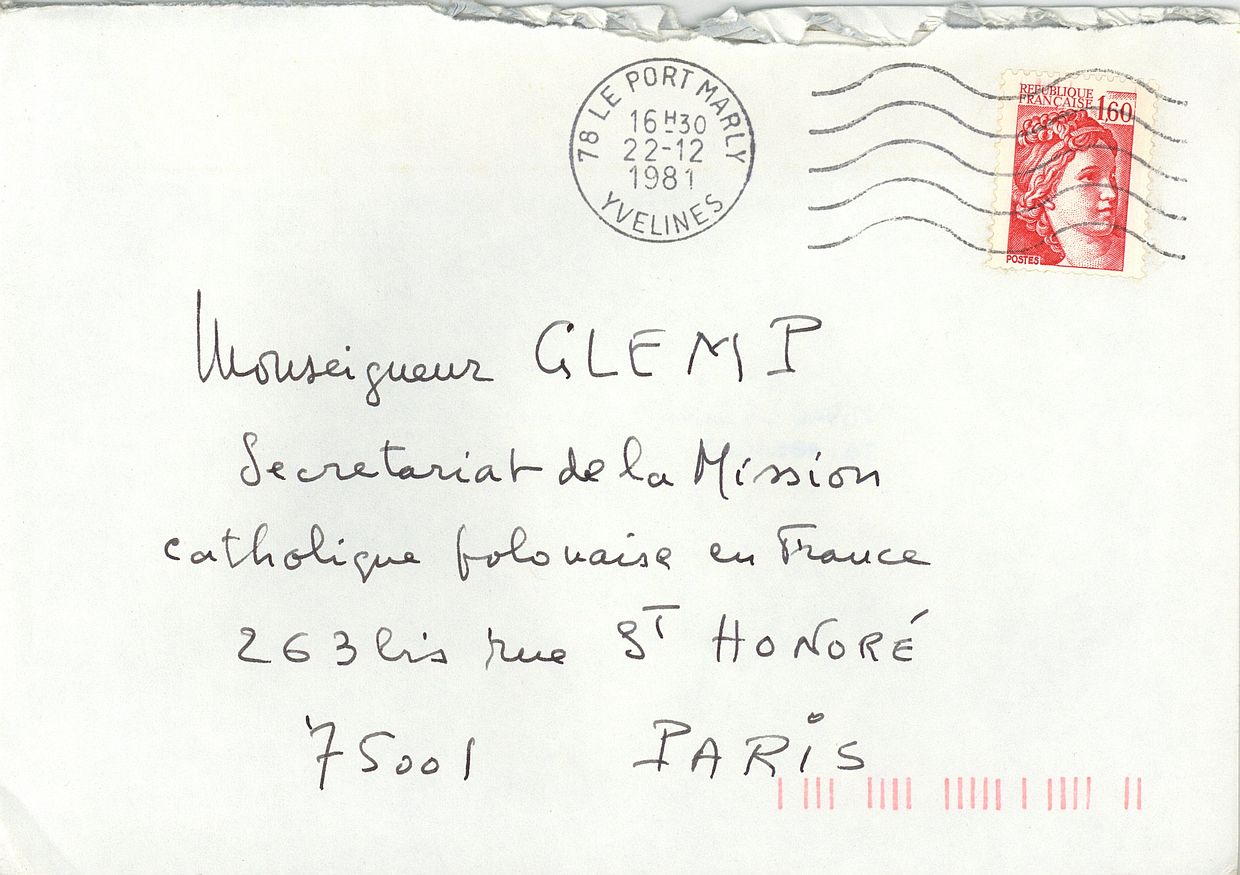 78 LE PORT MARLY
16H30
22-12
1981
YVELINES
REPUBLIQUE
FRANÇAISE 1,60
POSTES
Monseigneur GLEMP
Secretariat de la Mission
catholique polonaise en France
263 bis rue ST HONORÉ
75001 PARIS